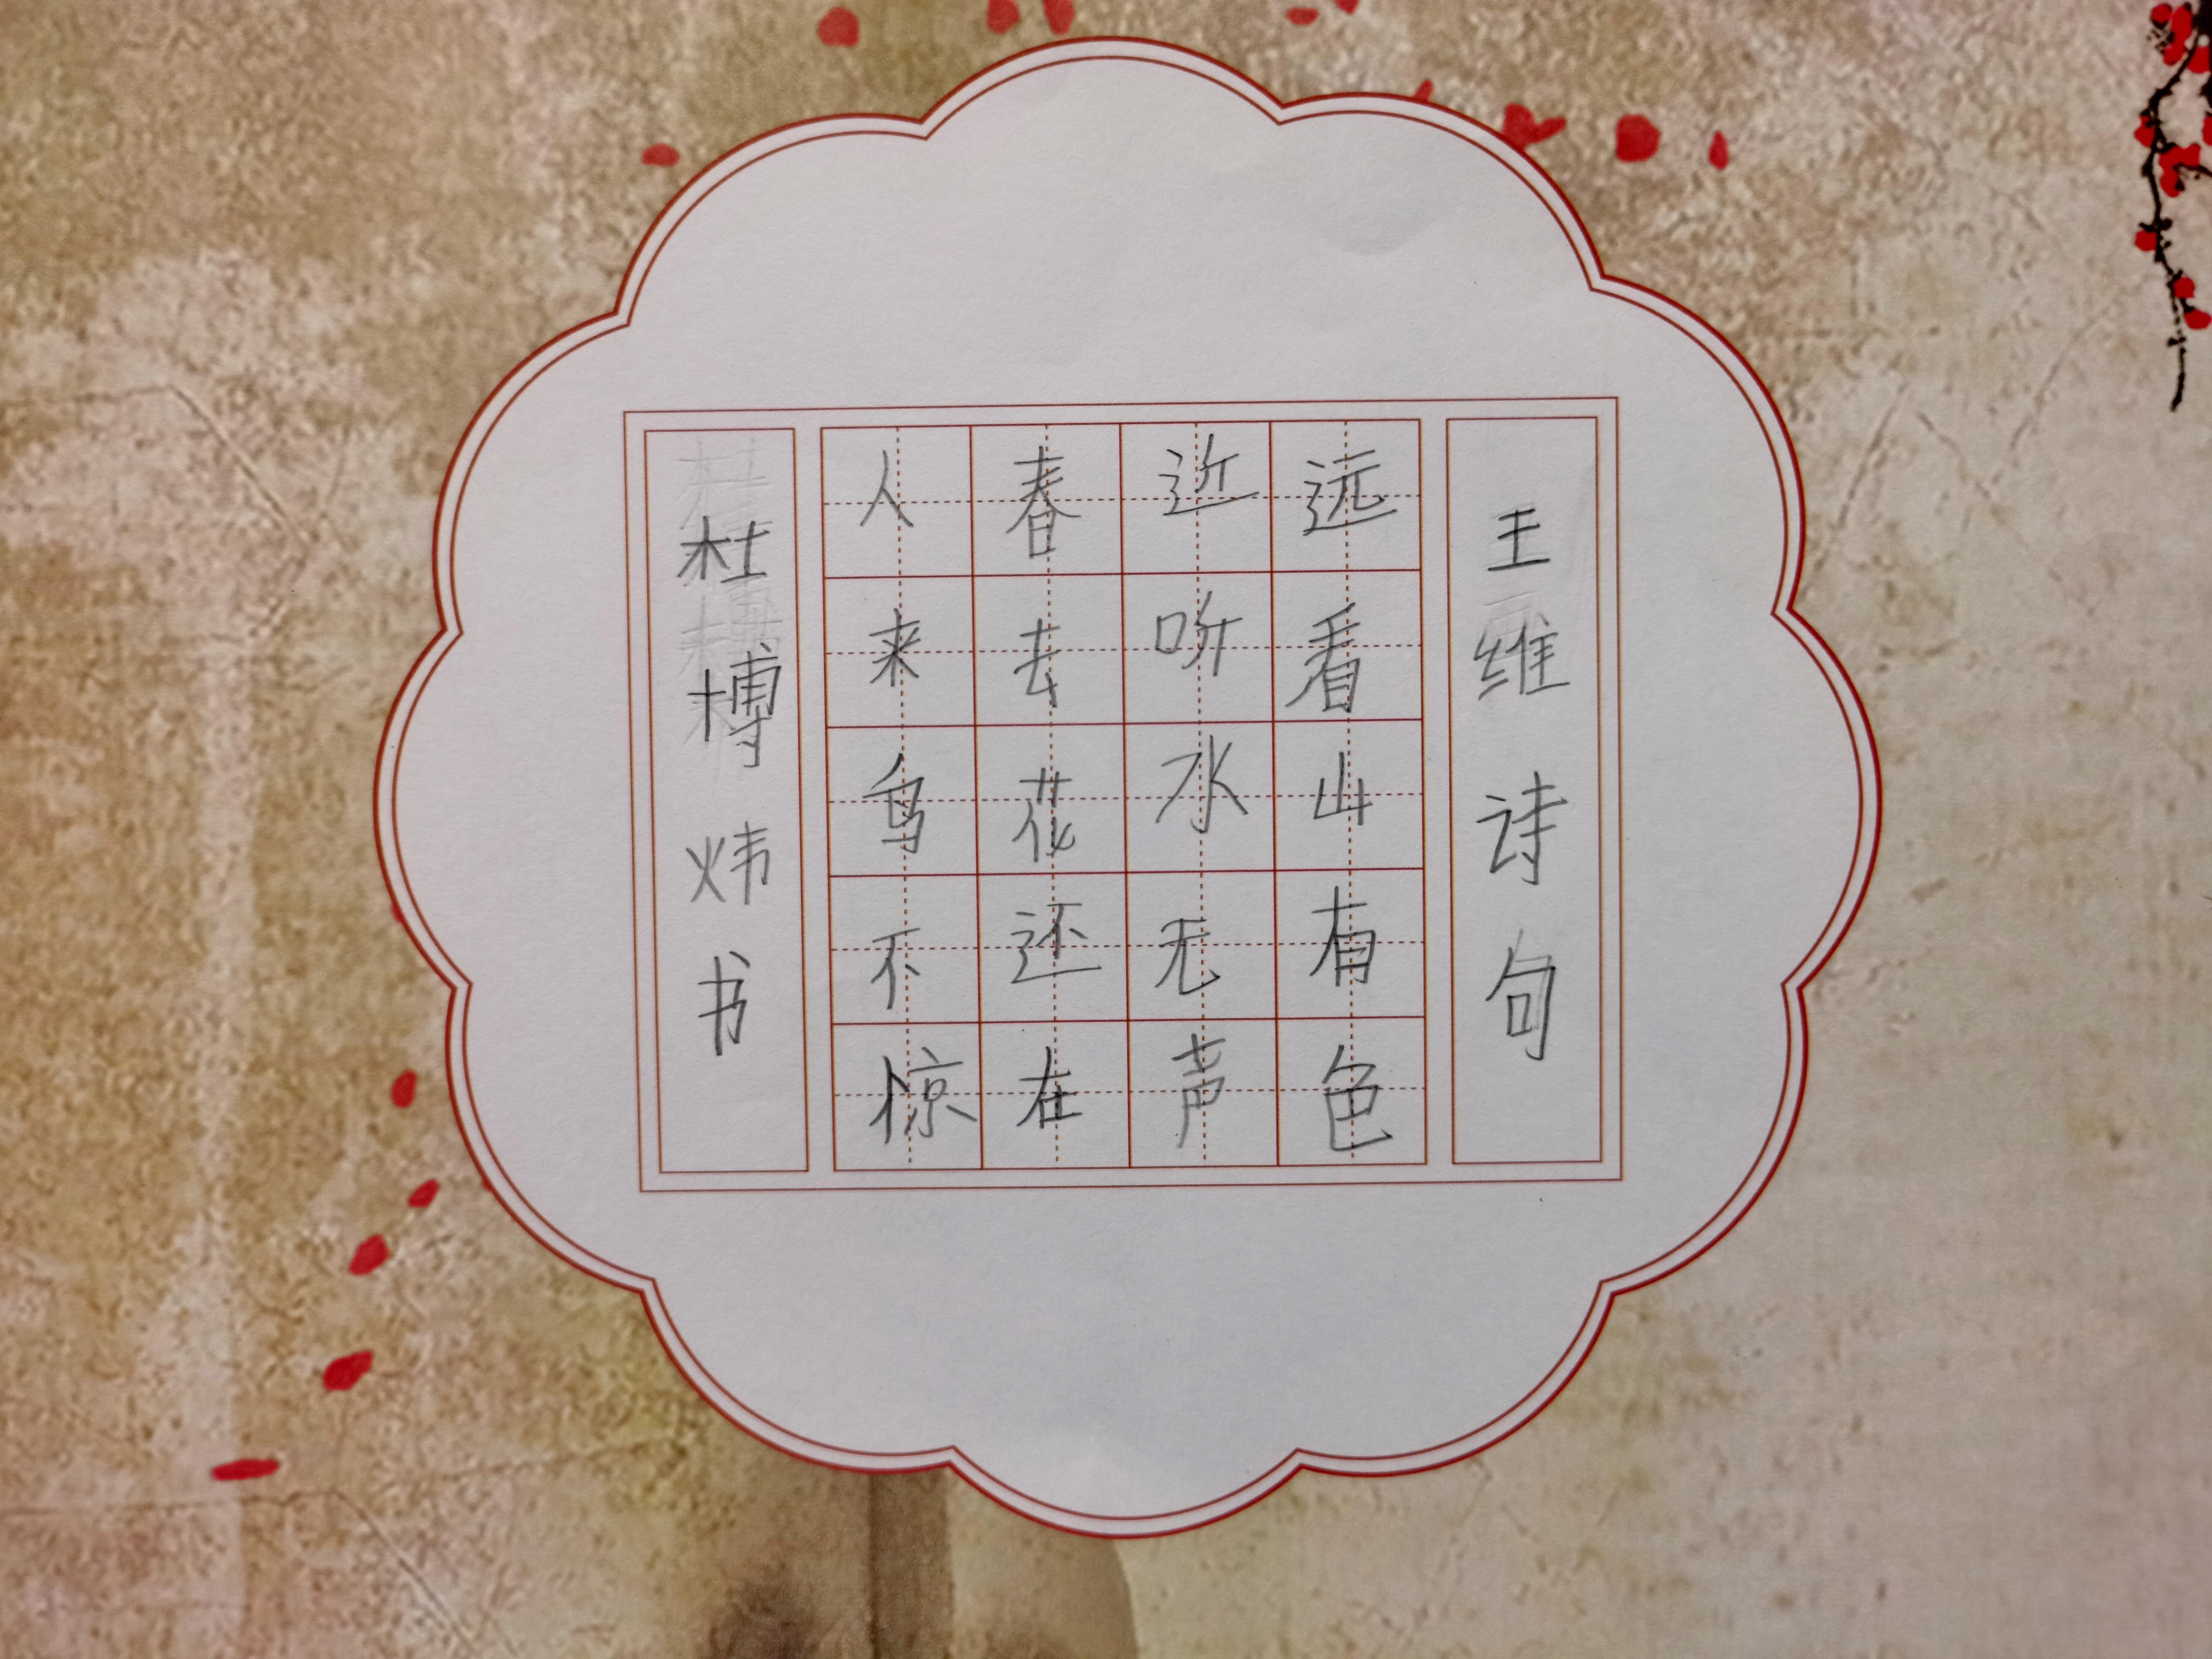 王维诗句
远看山有色
近听水无声
春去花还在
人来鸟不惊
杜博炜书